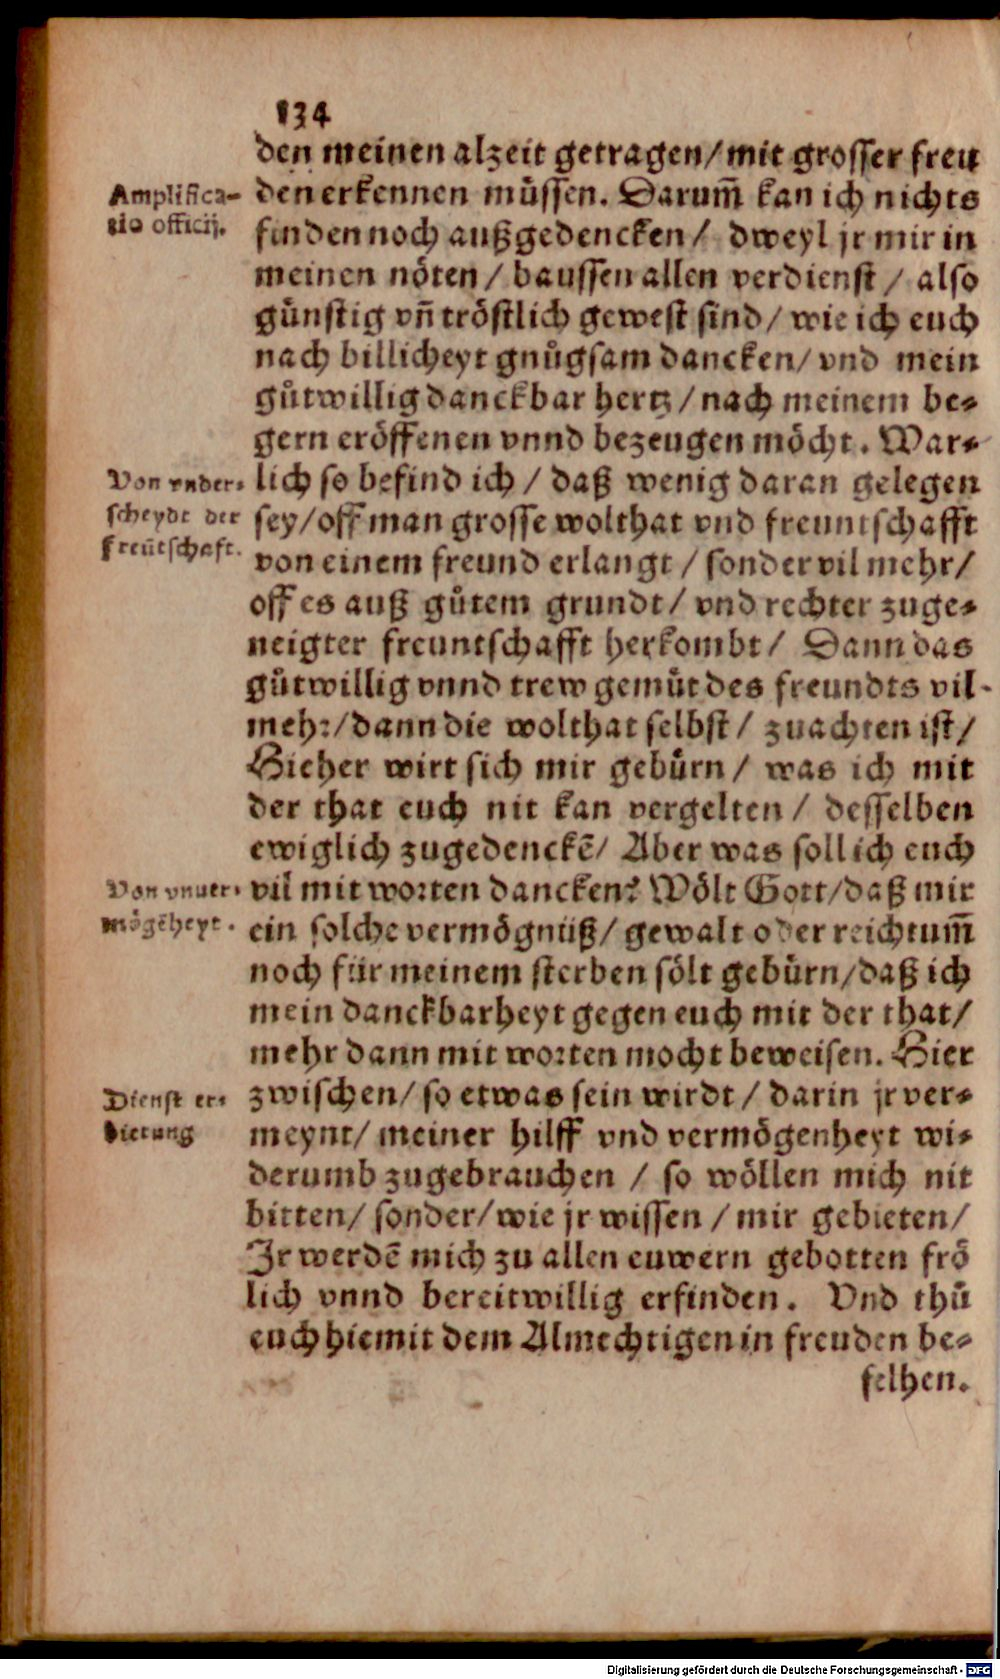 134
den meinen alzeit getragen/mit grosser freu
Amplifica-
tio officij.
den erkennen müssen. Darum̄ kan ich nichts
finden noch außgedencken/ dweyl jr mir in
meinen nöten/ baussen allen verdienst/ also
günstig vn̄ tröstlich gewest sind/ wie ich euch
nach billicheyt gnůgsam dancken/ vnd mein
gůtwillig danckbar hertz/nach meinem be-
gern eröffenen vnnd bezeugen möcht. War-
Von vnder-
scheydt der
freūtschaft.
lich so befind ich/ daß wenig daran gelegen
sey/off man grosse wolthat vnd freuntschafft
von einem freund erlangt/ sonder vil mehr/
off es auß gůtem grundt/ vnd rechter zuge-
neigter freuntschafft herkombt/ Dann das
gůtwillig vnnd trew gemůt des freundts vil-
mehr/dann die wolthat selbst/ zuachten ist/
Hieher wirt sich mir gebürn/ was ich mit
der that euch nit kan vergelten/ desselben
ewiglich zugedenckē/ Aber was soll ich euch
Von vnuer-
mögēheyt.
vil mit worten dancken? Wölt Gott/daß mir
ein solche vermögnüß/ gewalt oder reichtum̄
noch für meinem sterben sölt gebürn/daß ich
mein danckbarheyt gegen euch mit der that/
mehr dann mit worten mocht beweisen. Hier
Dienst er-
bietung
zwischen/ so etwas sein wirdt/ darin jr ver-
meynt/ meiner hilff vnd vermögenheyt wi-
derumb zugebrauchen/ so wöllen mich nit
bitten/ sonder/wie jr wissen/mir gebieten/
Jr werdē mich zu allen euwern gebotten frö
lich vnnd bereitwillig erfinden. Vnd thů
euch hiemit dem Almechtigen in freuden be-
felhen.
Digitalisierung gefördert durch die Deutsche Forschungsgemeinschaft - DFG